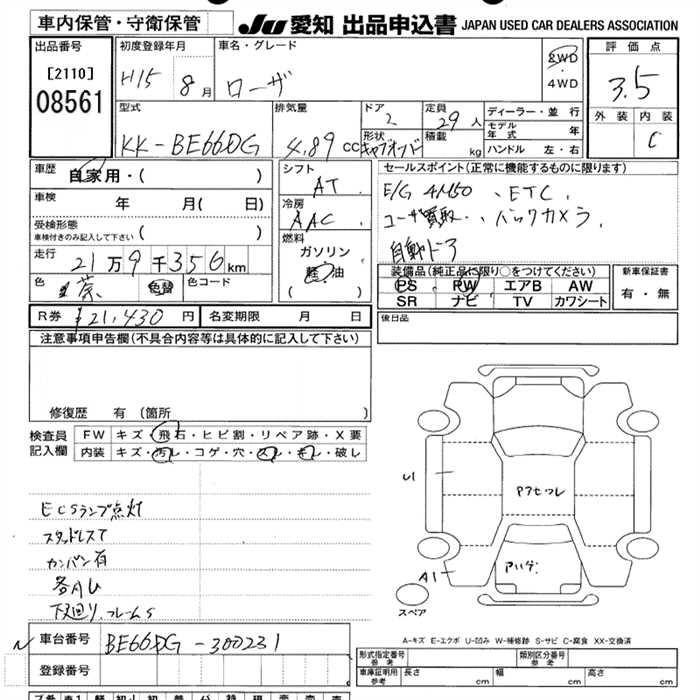 車内保管・守衛保管
JU 愛知 出品申込書 JAPAN USED CAR DEALERS ASSOCIATION
出品番号 初度登録年月 車名・グレード 2WD 評価点
[2110] H15 8月 ローザ 4WD 3.5
08561
型式 排気量 ドア 2 定員 29人 ディーラー・並行 外装 内装
モデル年式 年 C
KK-BE66DG 4.89 cc 形状 積載 kg ハンドル 左・右
車歴 自家用・( ) シフト セールスポイント(正常に機能するものに限ります)
AT E/G 4M50 、ETC、
車検 年 月( 日) 冷房 ユーザー買取、バックカメラ、
AAC 自動ドア
受検形態 ( ) 燃料
車検付きのみ記入して下さい ガソリン
走行 21万9千356km 軽油
( )
装備品(純正品に限り○をつけてください) 新車保証書
色 色替 色コード PS PW エアB AW 有・無
SR ナビ TV カワシート
R券 ¥21,430円 名変期限 月 日 後日品
注意事項申告欄(不具合内容等は具体的に記入して下さい)
修復歴 有(箇所 )
検査員 FW キズ・飛石・ヒビ割・リペア跡・X要
記入欄 内装 キズ・汚レ・コゲ・穴・スレ・キレ・破レ
U1
アクセワレ
ECSランプ点灯
スタッドレスT
カンバン有
各AU
A1
スペア
下廻り、フレームS
A-キズ E-エクボ U-凹み W-補修跡 S-サビ C-腐食 XX-交換済
N 車台番号 BE66DG-300231
登録番号
型式指定番号 参考 類別区分番号 参考
車庫証明用 参考 長さ cm 幅 cm 高さ cm